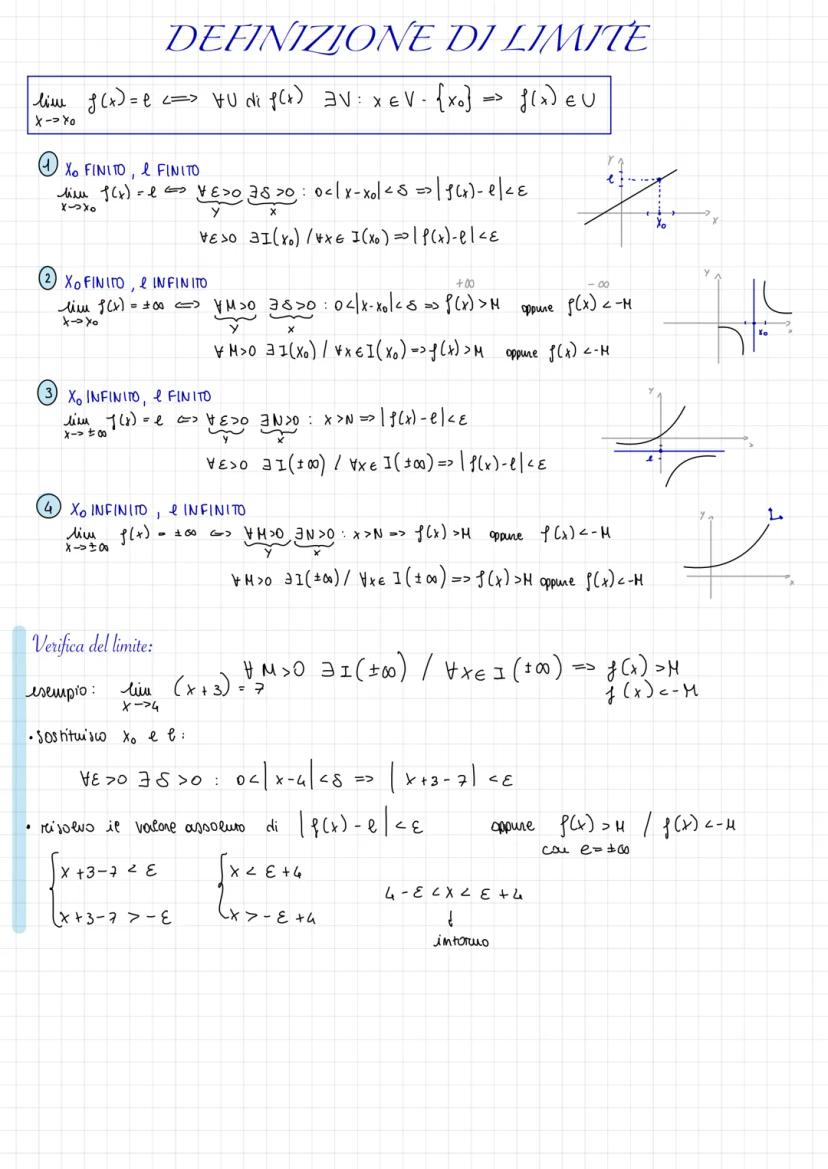 DEFINIZIONE DI LIMITE
lim f(x) = l <=> ∀U di f(x) ∃V : x ∈ V - {x₀} => f(x) ∈ U
x->x₀
1 X₀ FINITO, l FINITO
lim f(x) = l <=> ∀ε>0 ∃δ>0 : 0<|x-x₀|<δ => |f(x)-l|<ε
x->x₀
y x
∀ε>0 ∃I(x₀) / ∀x∈ I(x₀) => |f(x)-l|<ε
y
l
x₀
x
2 X₀ FINITO, l INFINITO
+∞ -∞
lim f(x) = ±∞ <=> ∀M>0 ∃δ>0 : 0<|x-x₀|<δ => f(x)>M oppure f(x)<-M
x->x₀
y x
∀M>0 ∃I(x₀) / ∀x∈I(x₀) => f(x)>M oppure f(x)<-M
y
x₀
x
3 X₀ INFINITO, l FINITO
lim f(x) = l <=> ∀ε>0 ∃N>0 : x>N => |f(x)-l|<ε
x->±∞
y x
∀ε>0 ∃I(±∞) / ∀x∈ I(±∞) => |f(x)-l|<ε
y
l
x
4 X₀ INFINITO, l INFINITO
lim f(x) = ±∞ <=> ∀M>0 ∃N>0 : x>N => f(x)>M oppure f(x)<-M
x->±∞
y x
∀M>0 ∃I(±∞) / ∀x∈ I(±∞) => f(x)>M oppure f(x)<-M
y
x
Verifica del limite:
∀M>0 ∃I(±∞) / ∀x∈I(±∞) => f(x)>M
f(x)<-M
esempio: lim (x+3) = 7
x->4
• sostituisco x₀ e l:
∀ε>0 ∃δ>0 : 0<|x-4|<δ => |x+3-7|<ε
• risolvo il valore assoluto di |f(x)-l|<ε oppure f(x)>M / f(x)<-M
con l=±∞
{x+3-7<ε {x<ε+4
4-ε<x<ε+4
x+3-7>-ε x>-ε+4
intorno